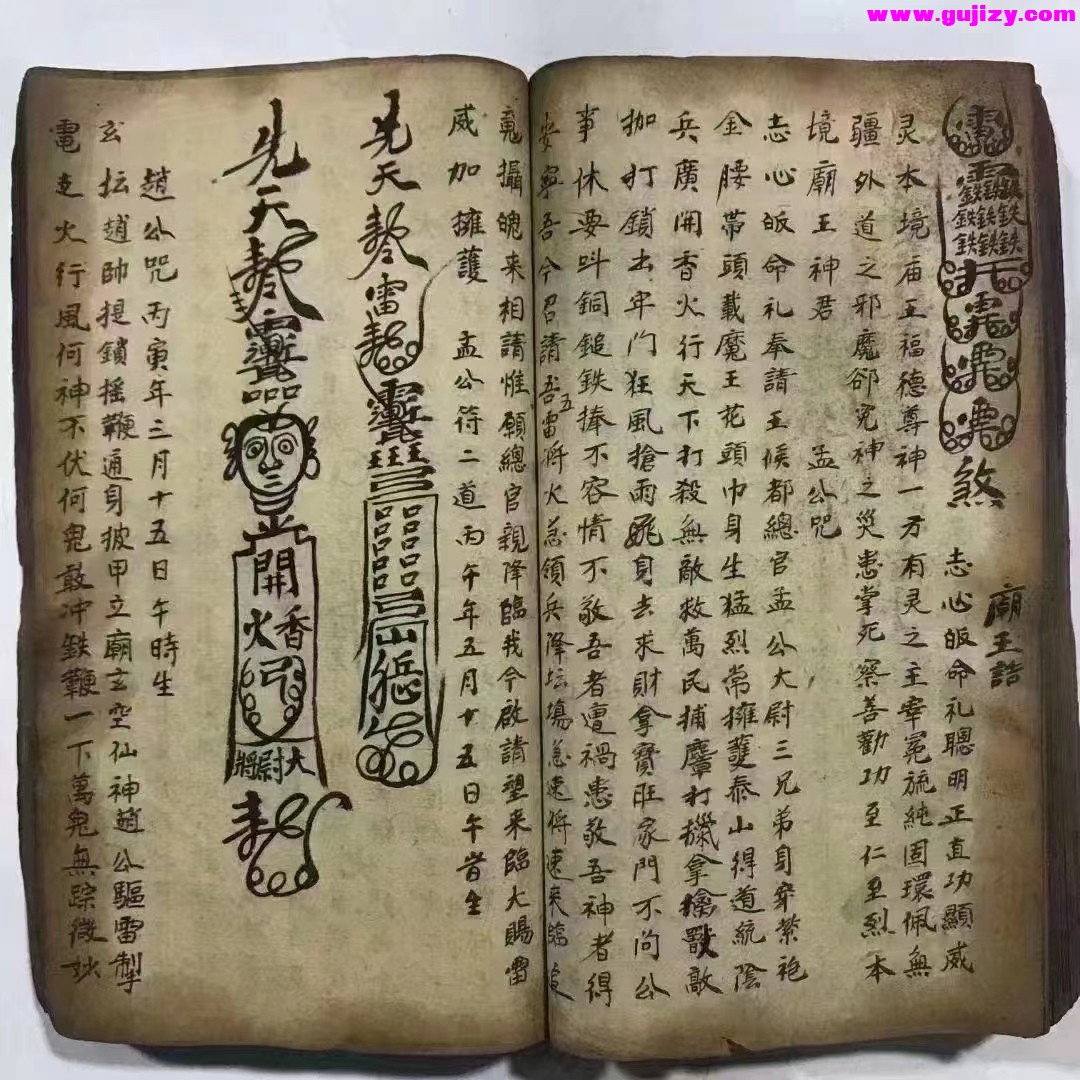 www.gujizy.com
煞
廟王誥
志心皈命礼聰明正直功顯威
灵本境庙王福德尊神一方有灵之主宰冕旒純固環佩無
疆外道之邪魔卻兇神之災患掌死察善勸功至仁至烈本
境廟王神君
孟公咒
志心皈命礼奉請王候都總官孟公大尉三兄弟身穿紫袍
金腰帶頭載魔王花頭巾身生猛烈常擁護泰山得道統陰
兵廣開香火行天下打殺無敵救萬民捕麞打獵拿擒獸敵
枷打鎖出牢门狂風搶雨身去求財拿寶旺家門不问公
事休要呌銅鎚鉄捧不容情不敬吾者遭禍患敬吾神者得
安寧吾今召請五雷將火急領兵降坛塲急速將速來臨追
魂攝魄来相請惟願總官親降臨我今啟請望来臨大賜雷
威加擁護
孟公符二道丙午年五月十五日午時生
先天
雷
山
先天
開
香火
大尉將
趙公咒丙寅年三月十五日午時生
玄坛趙帥提鎖摇鞭通身披甲立廟玄空仙神趙公驅雷掣
電走火行風何神不伏何鬼敢冲鉄鞭一下萬鬼無踪微妙